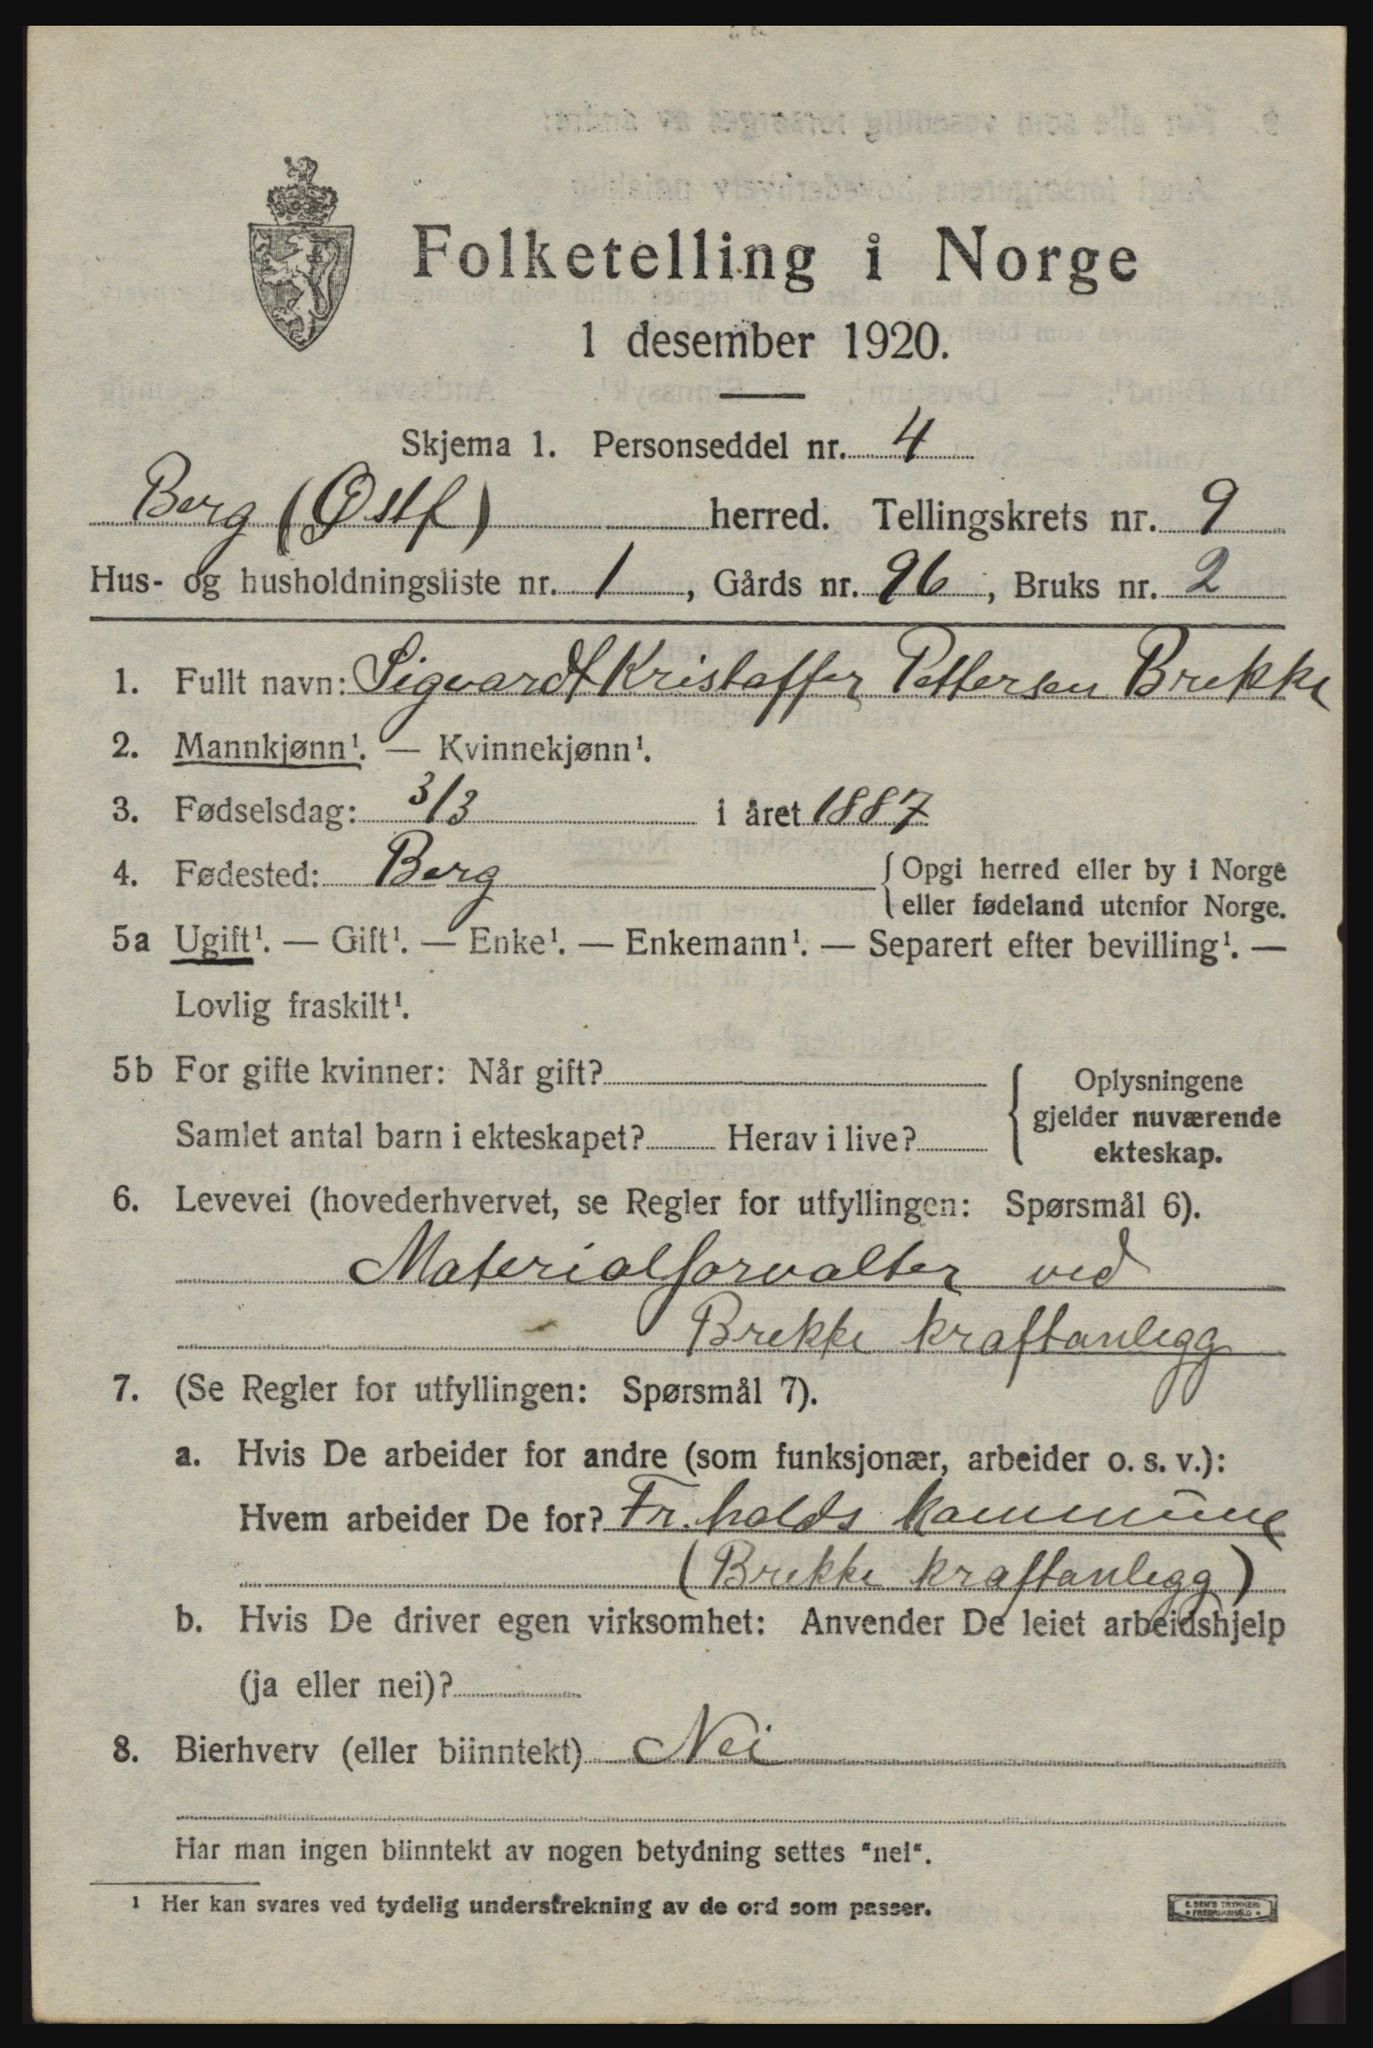 Folketelling i Norge
1 desember 1920.
Skjema 1. Personseddel nr. 4
Berg (Østf) herred. Tellingskrets nr. 9
Hus- og husholdningsliste nr. 1, Gårds nr. 96, Bruks nr. 2
1. Fullt navn: Sigvardt Kristoffer Pettersen Brekke
2. Mannkjønn¹. — Kvinnekjønn¹.
3. Fødselsdag: 3/3 i året 1887
4. Fødested: Berg { Opgi herred eller by i Norge
eller fødeland utenfor Norge.
5a Ugift¹. — Gift¹. — Enke¹. — Enkemann¹. — Separert efter bevilling¹. —
Lovlig fraskilt¹.
5b For gifte kvinner: Når gift?
Samlet antal barn i ekteskapet? Herav i live?
Oplysningene
gjelder nuværende
ekteskap.
6. Levevei (hovederhvervet, se Regler for utfyllingen: Spørsmål 6).
Materialforvalter ved
Brekke kraftanlegg
7. (Se Regler for utfyllingen: Spørsmål 7).
a. Hvis De arbeider for andre (som funksjonær, arbeider o. s. v.):
Hvem arbeider De for? Fr.halds kommune
(Brekke kraftanlegg)
b. Hvis De driver egen virksomhet: Anvender De leiet arbeidshjelp
(ja eller nei)?
8. Bierhverv (eller biinntekt) Nei
Har man ingen biinntekt av nogen betydning settes "nei".
¹ Her kan svares ved tydelig understrekning av de ord som passer.
E. SEM'S TRYKKERI
FREDRIKSHALD